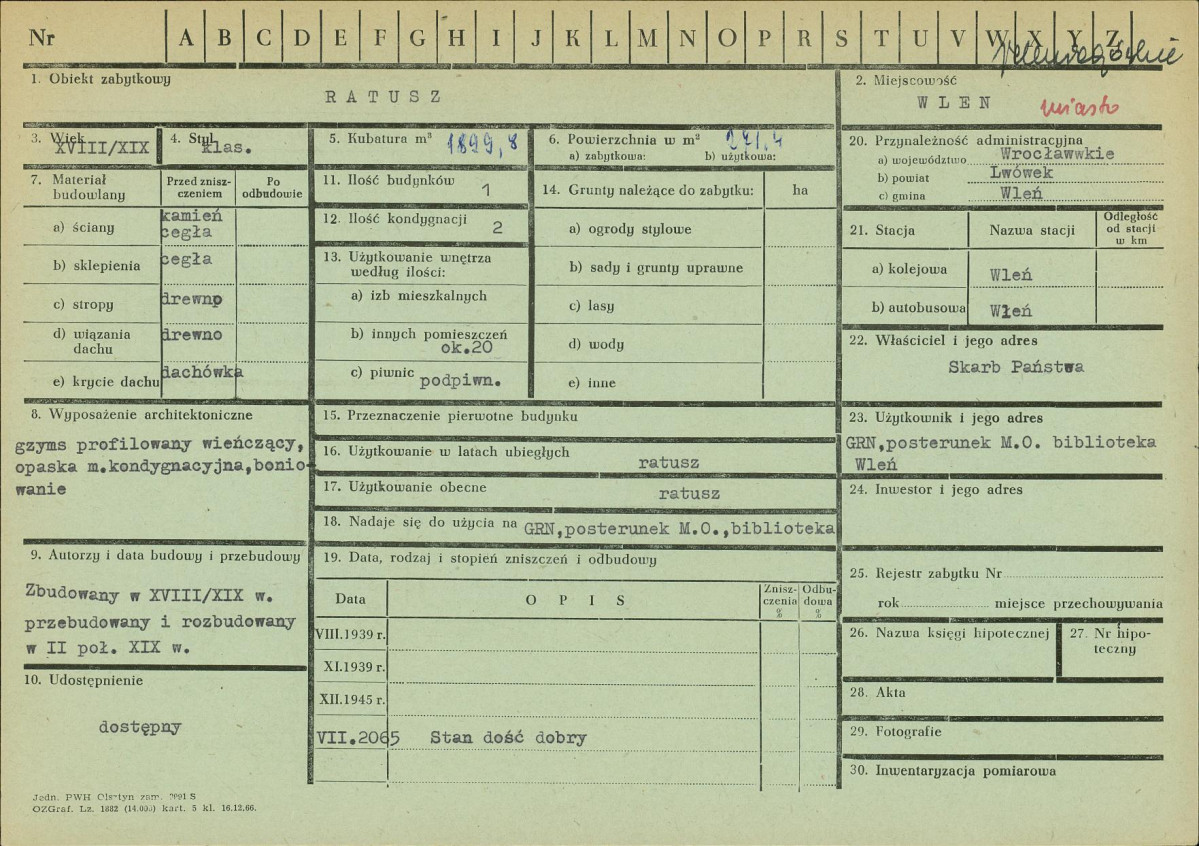 Nr A B C D E F G H I J K L M N O P R S T U V W X Y Z
Jeleniogórskie
1. Obiekt zabytkowy
RATUSZ
2. Miejscowość
WLEN miasto
3. Wiek
XVIII/XIX
4. Styl
klas.
5. Kubatura m³ 1899,8
6. Powierzchnia w m² 271,4
a) zabytkowa: b) użytkowa:
7. Materiał budowlany
Przed zniszczeniem
Po odbudowie
a) ściany kamień
cegła
b) sklepienia cegła
c) stropy drewno
d) wiązania dachu drewno
e) krycie dachu dachówka
8. Wyposażenie architektoniczne
gzyms profilowany wieńczący,
opaska m.kondygnacyjna,bonio-
wanie
9. Autorzy i data budowy i przebudowy
Zbudowany w XVIII/XIX w.
przebudowany i rozbudowany
w II poł. XIX w.
10. Udostępnienie
dostępny
11. Ilość budynków 1
12. Ilość kondygnacji 2
13. Użytkowanie wnętrza
według ilości:
a) izb mieszkalnych
b) innych pomieszczeń
ok.20
c) piwnic podpiwn.
14. Grunty należące do zabytku: ha
a) ogrody stylowe
b) sady i grunty uprawne
c) lasy
d) wody
e) inne
15. Przeznaczenie pierwotne budynku
16. Użytkowanie w latach ubiegłych
ratusz
17. Użytkowanie obecne
ratusz
18. Nadaje się do użycia na GRN,posterunek M.O.,biblioteka
19. Data, rodzaj i stopień zniszczeń i odbudowy
Data
OPIS
Zniszczenia %
Odbudowa %
VIII.1939 r.
XI.1939 r.
XII.1945 r.
VII.2065 Stan dość dobry
20. Przynależność administracyjna
a) województwo Wrocławwkie
b) powiat Lwówek
c) gmina Wleń
21. Stacja
Nazwa stacji
Odległość od stacji w km
a) kolejowa Wleń
b) autobusowa Wleń
22. Właściciel i jego adres
Skarb Państwa
23. Użytkownik i jego adres
GRN,posterunek M.O. biblioteka
Wleń
24. Inwestor i jego adres
25. Rejestr zabytku Nr
rok miejsce przechowywania
26. Nazwa księgi hipotecznej
27. Nr hipo-
teczny
28. Akta
29. Fotografie
30. Inwentaryzacja pomiarowa
Jedn. PWH Olsztyn zam. S
OZGraf. Lz. 1882 kart. 5 kl. 16.12.66.